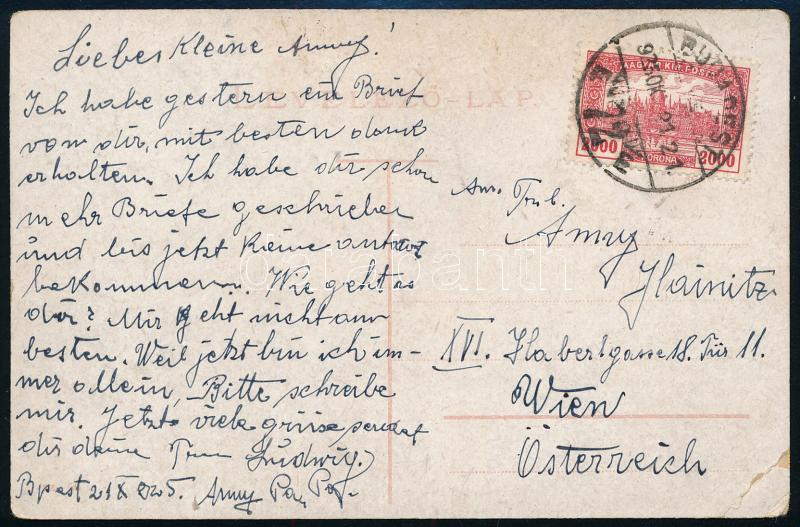 Liebes Kleine Anny!
Ich habe gestern ein Brief
vom dir, mit besten dank
erhalten. Ich habe dir schon
mehr Briefe geschrieben
und bis jetzt keine antwort
bekommen. Wie geht es
dir? Mir geht nicht am
besten. Weil jetzt bin ich im-
mer allein, Bitte schreibe
mir. Jetzt viele grüsse sendet
dir deine Ludwig.
Bpest 21 X 925. Anny
LEVELEZŐ-LAP
MAGYAR KIR. POSTA
2000 KORONA 2000
BUDAPEST
Anny
Hainitz
XVI. Haberlgasse 18. Tür 11.
Wien
Österreich
darabanth